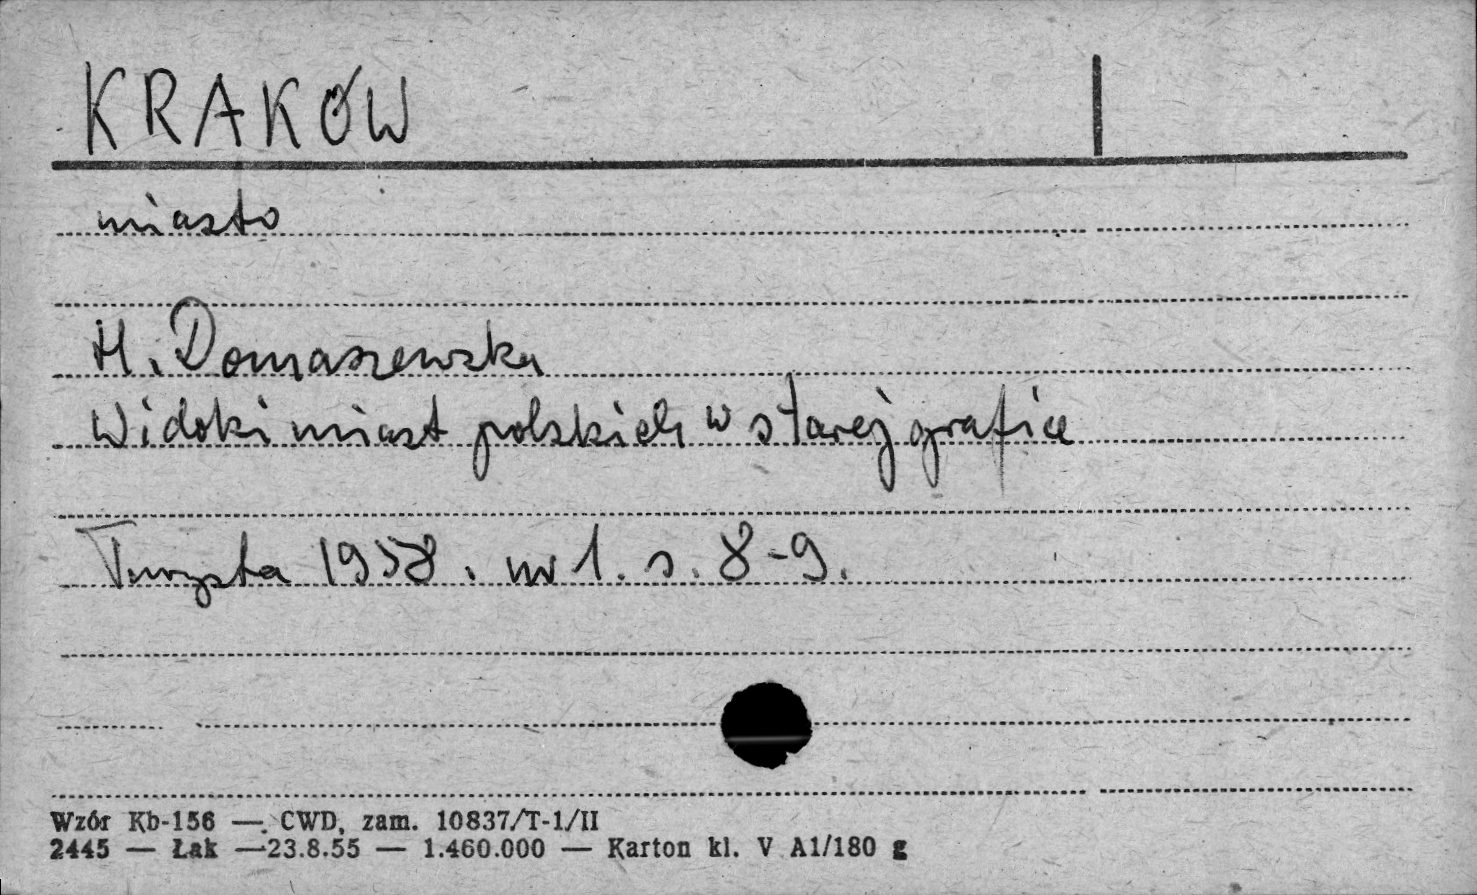 KRAKÓW
miasto
H. Domaszewska
Widoki miast polskich w starej grafice
Turysta 1958. nr 1. s. 8-9.
Wzór Kb-156 — CWD, zam. 10837/T-1/II
2445 — Łak — 23.8.55 — 1.460.000 — Karton kl. V A1/180 g